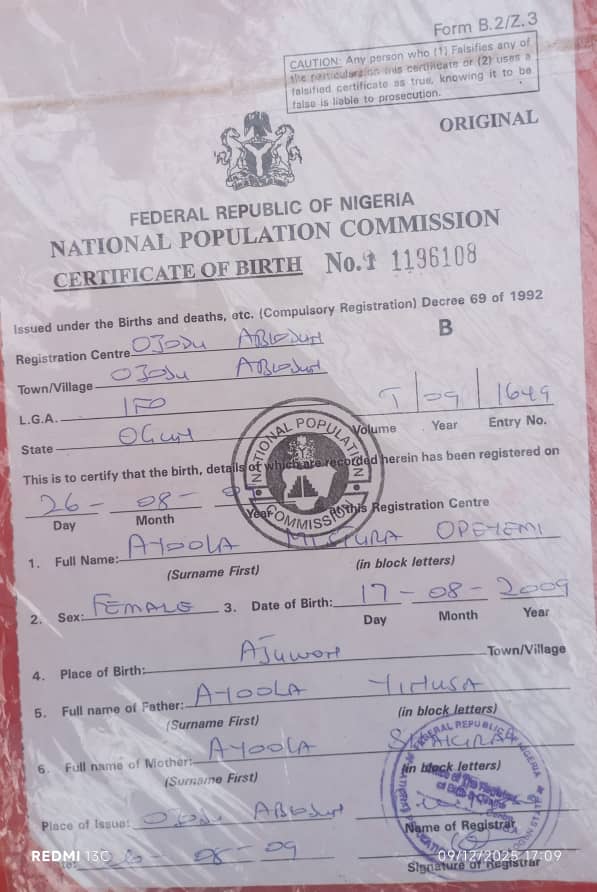 Form B.2/Z.3
CAUTION: Any person who (1) Falsifies any of
the particulars on this certificate or (2) uses a
falsified certificate as true, knowing it to be
false is liable to prosecution.
ORIGINAL
FEDERAL REPUBLIC OF NIGERIA
NATIONAL POPULATION COMMISSION
CERTIFICATE OF BIRTH No. 1196108
Issued under the Births and deaths, etc. (Compulsory Registration) Decree 69 of 1992
B
Registration Centre OJODU ABIODUN
Town/Village OJODU ABIODUN
L.G.A. IFO
I/09/1649
Volume Year Entry No.
State OGUN
NATIONAL POPULATION COMMISSION
This is to certify that the birth, details of which are recorded herein has been registered on
26 - 08 -
Day Month Year at this Registration Centre
1. Full Name: AYOOLA OPEYEMI
(Surname First) (in block letters)
2. Sex: FEMALE 3. Date of Birth: 17 - 08 - 2009
Day Month Year
4. Place of Birth: AJUWON Town/Village
5. Full name of Father: AYOOLA YINUSA
(Surname First) (in block letters)
6. Full name of Mother: AYOOLA
(Surname First) (in block letters)
FEDERAL REPUBLIC OF NIGERIA
Place of Issue: OJODU ABIODUN
Name of Registrar
08 - 09
Signature of Registrar
REDMI 13C
09/12/2025 17:09